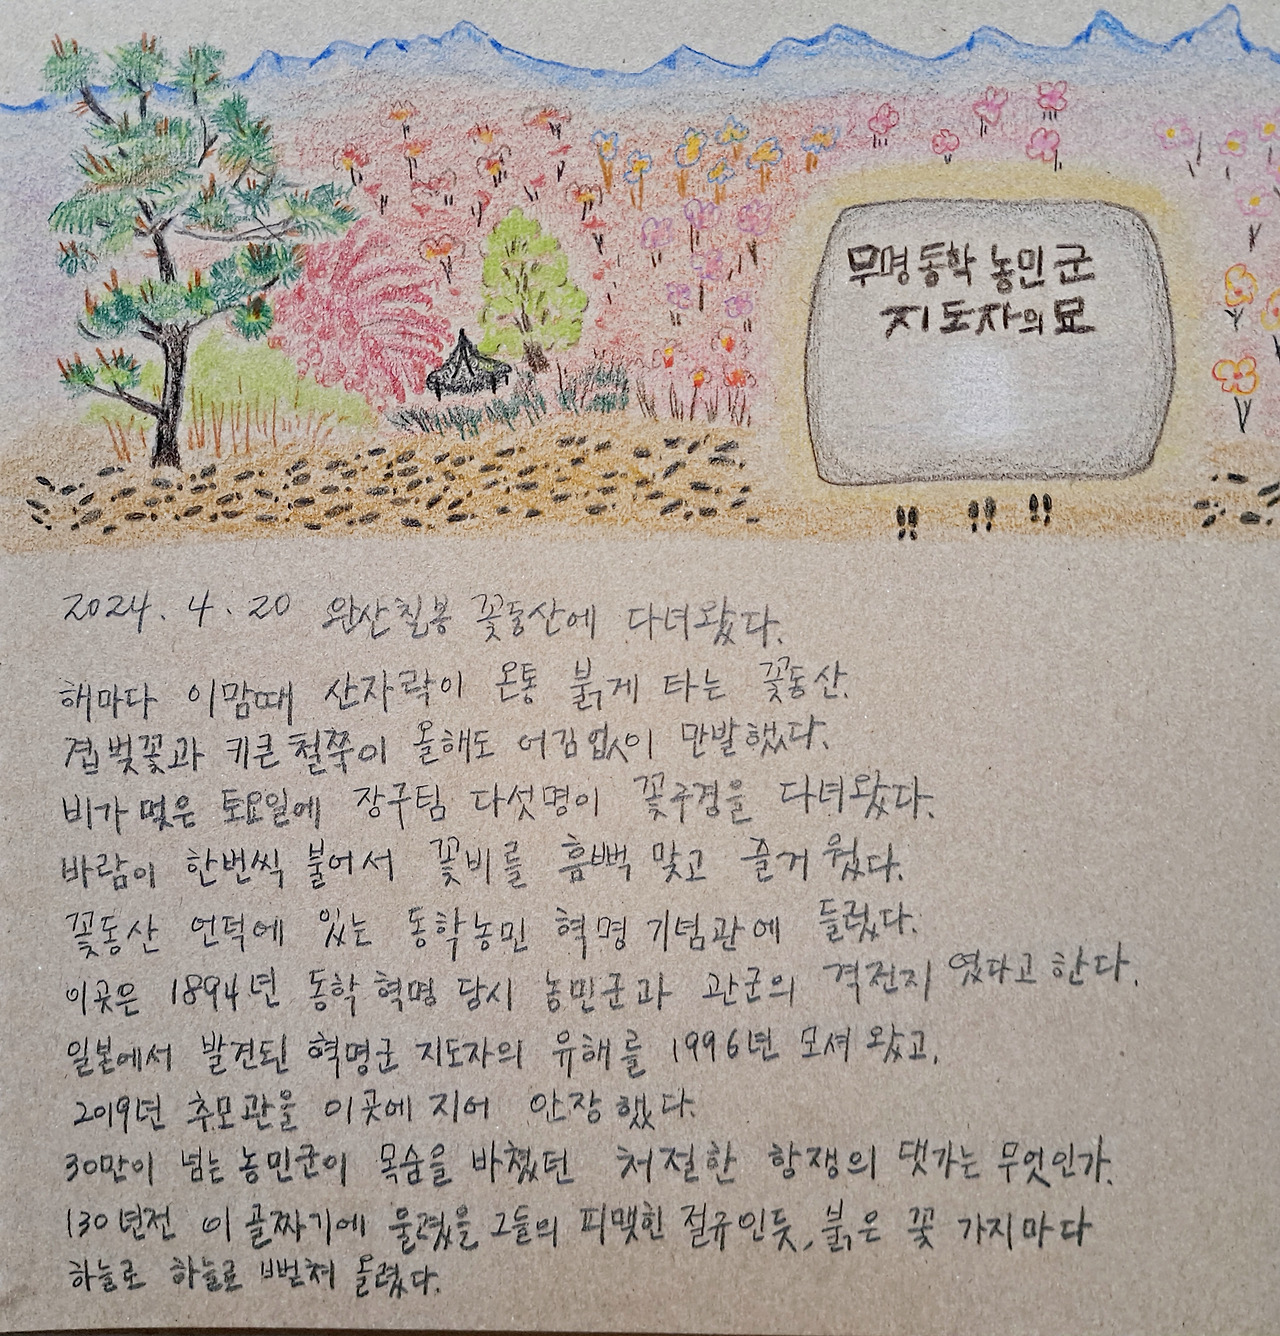 무명동학 농민군
지도자의묘
2024. 4. 20 완산칠봉 꽃동산에 다녀왔다.
해마다 이맘때 산자락이 온통 붉게 타는 꽃동산.
겹벚꽃과 키큰 철쭉이 올해도 어김없이 만발했다.
비가 멎은 토요일에 장구팀 다섯명이 꽃구경을 다녀왔다.
바람이 한번씩 불어서 꽃비를 흠뻑 맞고 즐거웠다.
꽃동산 언덕에 있는 동학농민 혁명 기념관에 들렀다.
이곳은 1894년 동학 혁명 당시 농민군과 관군의 격전지 였다고 한다.
일본에서 발견된 혁명군 지도자의 유해를 1996년 모셔 왔고,
2019년 추모관을 이곳에 지어 안장했다.
30만이 넘는 농민군이 목숨을 바쳤던 처절한 항쟁의 댓가는 무엇인가.
130년전 이 골짜기에 울렸을 그들의 피맺힌 절규인듯, 붉은 꽃 가지마다
하늘로 하늘로 뻗쳐 올렸다.